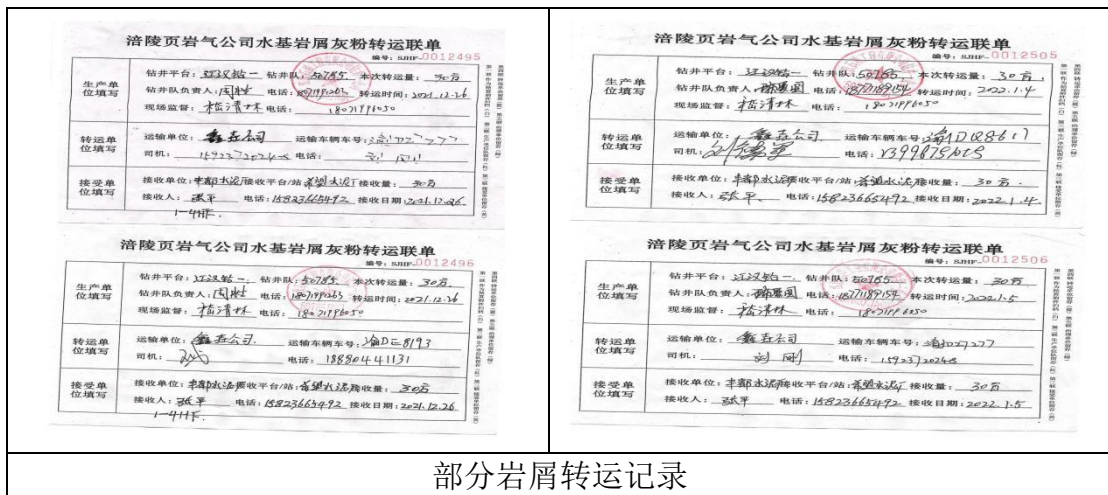 涪陵页岩气公司水基岩屑灰粉转运联单
编号：SJHF-0012495
生产单位填写
钻井平台：江汉钻一 钻井队：50785 本次转运量：30方
钻井队负责人： 电话： 转运时间：2021.12.26
现场监督： 电话：18071996050
转运单位填写
运输单位：鑫垚公司 运输车辆车号：
司机： 电话：
接受单位填写
接收单位：丰都水泥厂 接收平台/站：希望水泥厂 接收量：30方
接收人：张平 电话：15823665492 接收日期：2021.12.26.
1-4HF.
涪陵页岩气公司水基岩屑灰粉转运联单
编号：SJHF-0012496
生产单位填写
钻井平台：江汉钻一 钻井队：50785 本次转运量：30方
钻井队负责人： 电话： 转运时间：2021.12.26
现场监督： 电话：18071996050
转运单位填写
运输单位：鑫垚公司. 运输车辆车号：渝DE8193
司机： 电话：18880441131
接受单位填写
接收单位：丰都水泥厂 接收平台/站：希望水泥厂 接收量：30方
接收人：张平 电话：15823665492 接收日期：2021.12.26
1-4HF.
涪陵页岩气公司水基岩屑灰粉转运联单
编号：SJHF-0012505
生产单位填写
钻井平台：江汉钻一 钻井队：50785 本次转运量：30方.
钻井队负责人： 电话：18771189154 转运时间：2022.1.4
现场监督： 电话：18071996050
转运单位填写
运输单位：鑫垚公司 运输车辆车号：渝DQ8617
司机： 电话：
接受单位填写
接收单位：丰都水泥厂 接收平台/站：希望水泥厂 接收量：30方.
接收人：张平. 电话：15823665492 接收日期：2022.1.4.
涪陵页岩气公司水基岩屑灰粉转运联单
编号：SJHF-0012506
生产单位填写
钻井平台：江汉钻一. 钻井队：50785 本次转运量：30方
钻井队负责人： 电话：18771189154 转运时间：2022.1.5
现场监督： 电话：18071996050
转运单位填写
运输单位：鑫垚公司 运输车辆车号：
司机：刘刚 电话：
接受单位填写
接收单位：丰都水泥厂 接收平台/站：希望水泥厂 接收量：30方
接收人：张平 电话：15823665492 接收日期：2022.1.5
部分岩屑转运记录